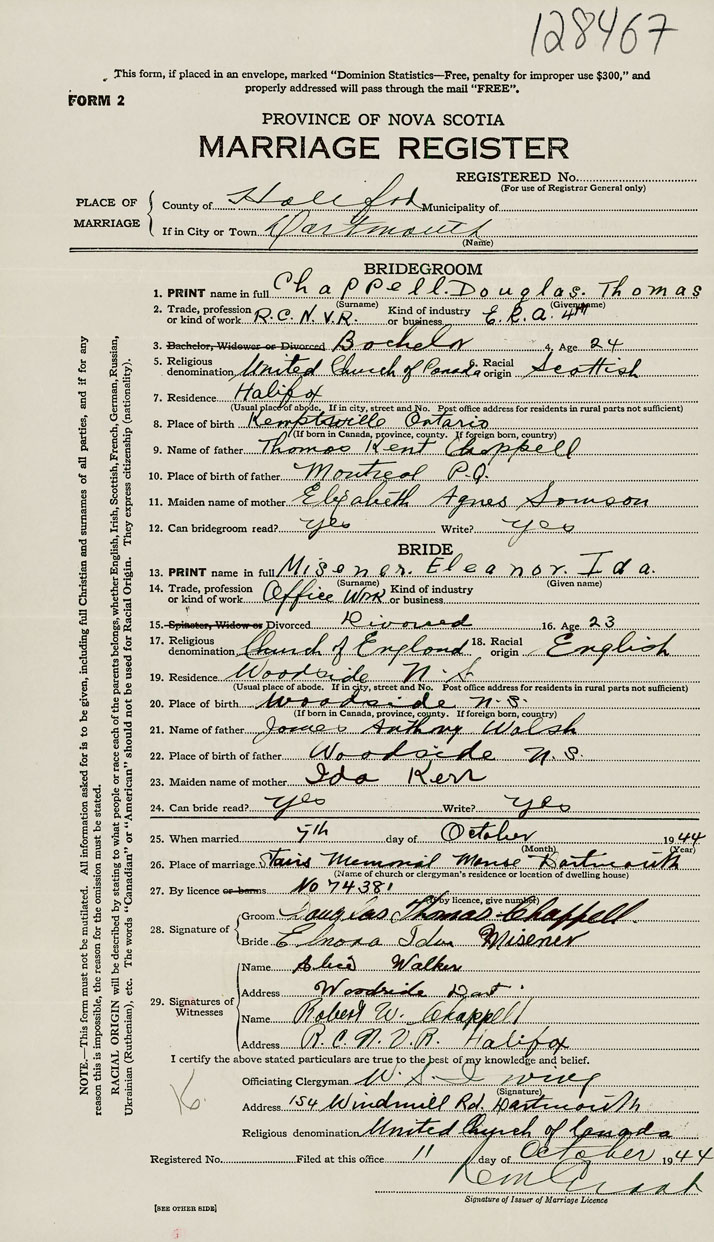 128467
This form, if placed in an envelope, marked "Dominion Statistics—Free, penalty for improper use $300," and
properly addressed will pass through the mail "FREE".
FORM 2
PROVINCE OF NOVA SCOTIA
MARRIAGE REGISTER
REGISTERED No.
(For use of Registrar General only)
PLACE OF MARRIAGE
County of Halifax Municipality of
If in City or Town Dartmouth
(Name)
BRIDEGROOM
1. PRINT name in full Chappell. Douglas. Thomas
(Surname) (Given name)
2. Trade, profession or kind of work R.C.N.V.R. Kind of industry or business E.R.A. 4th
3. Bachelor, Widower or Divorced Bachelor 4. Age 24
5. Religious denomination United Church of Canada 6. Racial origin Scottish
7. Residence Halifax
(Usual place of abode. If in city, street and No. Post office address for residents in rural parts not sufficient)
8. Place of birth Kemptville Ontario
(If born in Canada, province, county. If foreign born, country)
9. Name of father Thomas Kent Chappell
10. Place of birth of father Montreal P.Q.
11. Maiden name of mother Elizabeth Agnes Samson
12. Can bridegroom read? yes Write? yes
BRIDE
13. PRINT name in full Misener. Eleanor. Ida.
(Surname) (Given name)
14. Trade, profession or kind of work Office Work Kind of industry or business
15. Spinster, Widow or Divorced Divorced 16. Age 23
17. Religious denomination Church of England 18. Racial origin English
19. Residence Woodside N.S.
(Usual place of abode. If in city, street and No. Post office address for residents in rural parts not sufficient)
20. Place of birth Woodside N.S.
(If born in Canada, province, county. If foreign born, country)
21. Name of father James Anthony Walsh
22. Place of birth of father Woodside N.S.
23. Maiden name of mother Ida Kerr
24. Can bride read? yes Write? yes
25. When married 7th day of October 1944
(Month) (Year)
26. Place of marriage Stairs Memorial Manse Dartmouth
(Name of church or clergyman's residence or location of dwelling house)
27. By licence or banns No 74381
(If by licence, give number)
28. Signature of
Groom Douglas Thomas Chappell.
Bride Elnora Ida Misener
29. Signatures of Witnesses
Name Alice Walker
Address Woodside Dart.
Name Robert W. Chappell
Address R.C.N.V.R. Halifax
I certify the above stated particulars are true to the best of my knowledge and belief.
Officiating Clergyman W. S.
(Signature)
Address 154 Windmill Rd. Dartmouth
Religious denomination United Church of Canada
Registered No. Filed at this office 11 day of October 1944
Signature of Issuer of Marriage Licence
[SEE OTHER SIDE]
NOTE.—This form must not be mutilated. All information asked for is to be given, including full Christian and surnames of all parties, and if for any
reason this is impossible, the reason for the omission must be stated.
RACIAL ORIGIN will be described by stating to what people or race each of the parents belongs, whether English, Irish, Scottish, French, German, Russian,
Ukrainian (Ruthenian), etc. The words "Canadian" or "American" should not be used for Racial Origin. They express citizenship (nationality).